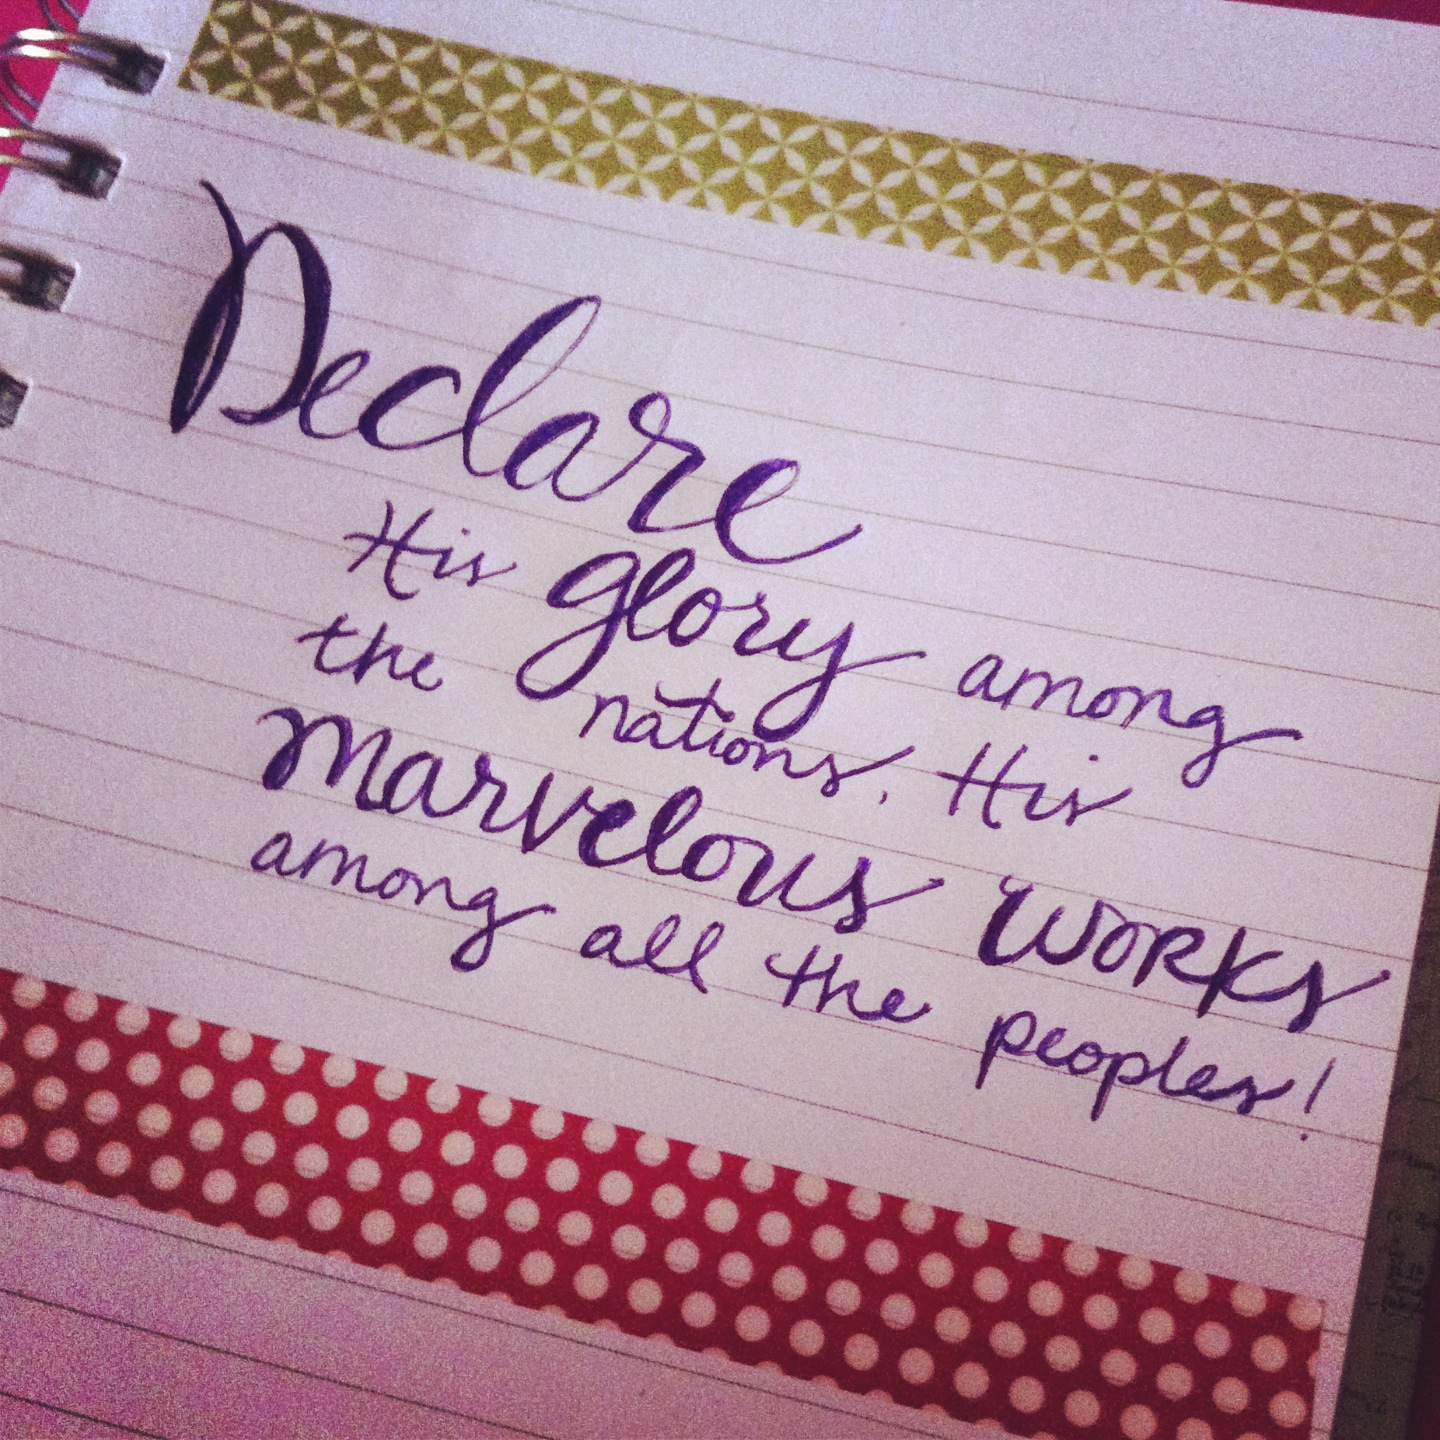 Declare
His glory among
the nations, His
marvelous works
among all the peoples!